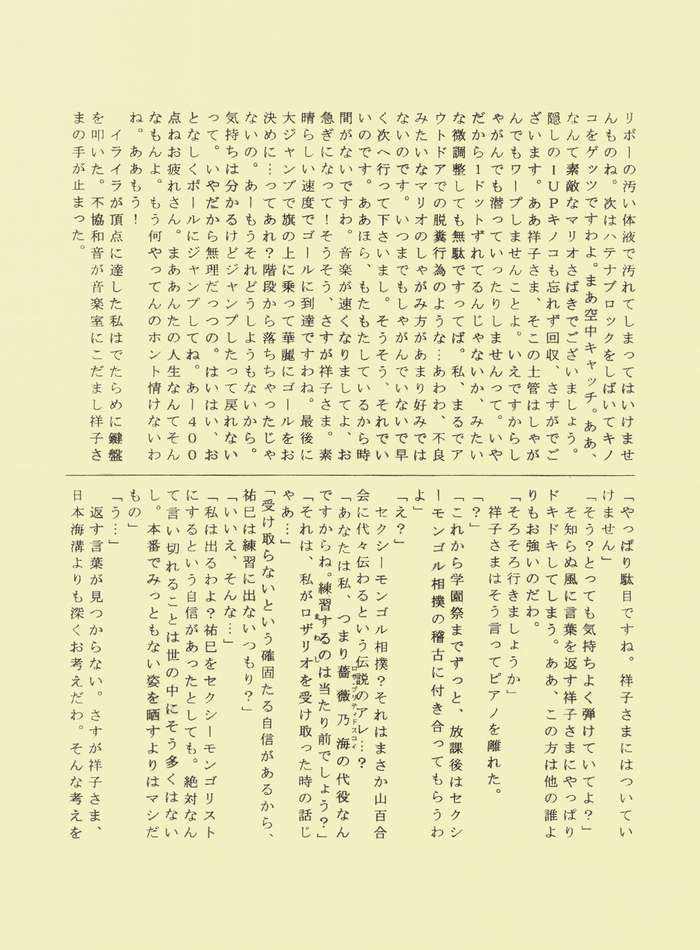 リボーの汚い体液で汚れてしまってはいけませ
んものね。次はハテナブロックをしばいてキノ
コをゲッツですわよ。まあ空中キャッチ。ああ、
なんて素敵なマリオさばきでございましょう。
隠しの1UPキノコも忘れず回収、さすがでご
ざいます。ああ祥子さま、そこの土管はしゃが
んでもワープしませんことよ。いえですからし
ゃがんでも潜っていったりしませんって。いや
だから1ドットずれてるんじゃないか、みたい
な微調整しても無駄ですってば。私、まるでア
ウトドアでの脱糞行為のような…あわわ、不良
みたいなマリオのしゃがみ方があまり好みでは
ないのです。いつまでもしゃがんでいないで早
く次へ行って下さいまし。そうそう、それでい
いのです。ああほら、もたもたしているから時
間がないですわ。音楽が速くなりましてよ、お
急ぎになって！そうそう、さすが祥子さま。素
晴らしい速度でゴールに到達ですわね。最後に
大ジャンプで旗の上に乗って華麗にゴールをお
決めに…ってあれ？階段から落ちちゃったじゃ
ないの。あーもうそれどうしようもないから。
気持ちは分かるけどジャンプしたって戻れない
って。いやだから無理だっつの。はいはい、お
となしくポールにジャンプしてね。あー400
点ねお疲れさん。まああんたの人生なんてそん
なもんよ。もう何やってんのホント情けないわ
ね。ああもう！
　イライラが頂点に達した私はでたらめに鍵盤
を叩いた。不協和音が音楽室にこだまし祥子さ
まの手が止まった。
「やっぱり駄目ですね。祥子さまにはついてい
けません」
「そう？とっても気持ちよく弾けていてよ？」
　そ知らぬ風に言葉を返す祥子さまにやっぱり
ドキドキしてしまう。ああ、この方は他の誰よ
りもお強いのだわ。
「そろそろ行きましょうか」
　祥子さまはそう言ってピアノを離れた。
「？」
「これから学園祭までずっと、放課後はセクシ
ーモンゴル相撲の稽古に付き合ってもらうわ
よ」
「え？」
　セクシーモンゴル相撲？それはまさか山百合
会に代々伝わるという伝説のアレ…？
「あなたは私、つまり薔薇乃海の代役なん
ですからね。練習するのは当たり前でしょう？」
まわし
「それは、私がロザリオを受け取った時の話じ
ゃあ…」
「受け取らないという確固たる自信があるから、
祐巳は練習に出ないつもり？」
「いいえ、そんな…」
「私は出るわよ？祐巳をセクシーモンゴリスト
にするという自信があったとしても。絶対なん
て言い切れることは世の中にそう多くはない
し。本番でみっともない姿を晒すよりはマシだ
もの」
「う…」
　返す言葉が見つからない。さすが祥子さま、
日本海溝よりも深くお考えだわ。そんな考えを